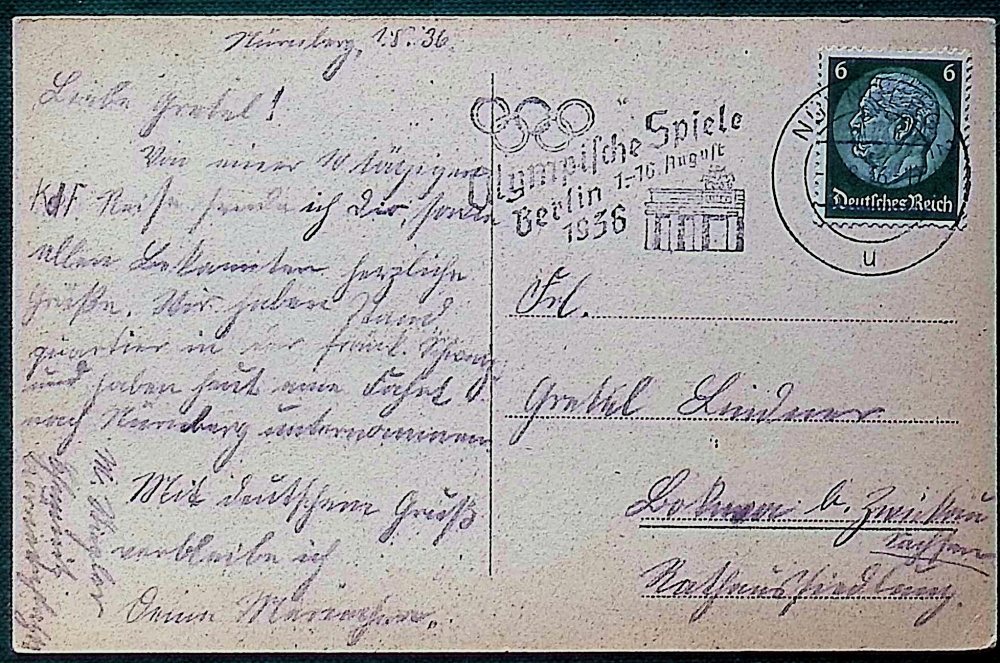 Nürnberg, 1.8.36.
Liebe Gretel!
Von einer 10 tägigen
KdF. Reise sende ich Dir, sowie
allen Bekannten herzliche
Grüße. Wir haben Stand
quartier in der fränk. Schweiz
und haben heut eine Fahrt
nach Nürnberg unternommen
Mit deutschem Gruß
verbleibe ich
Deine
Olympische Spiele
Berlin 1.-16. August
1936
6 6
Deutsches Reich
u
Frl.
Gretel Lindner
b. Zwickau
Sachsen
Rathaussiedlung.